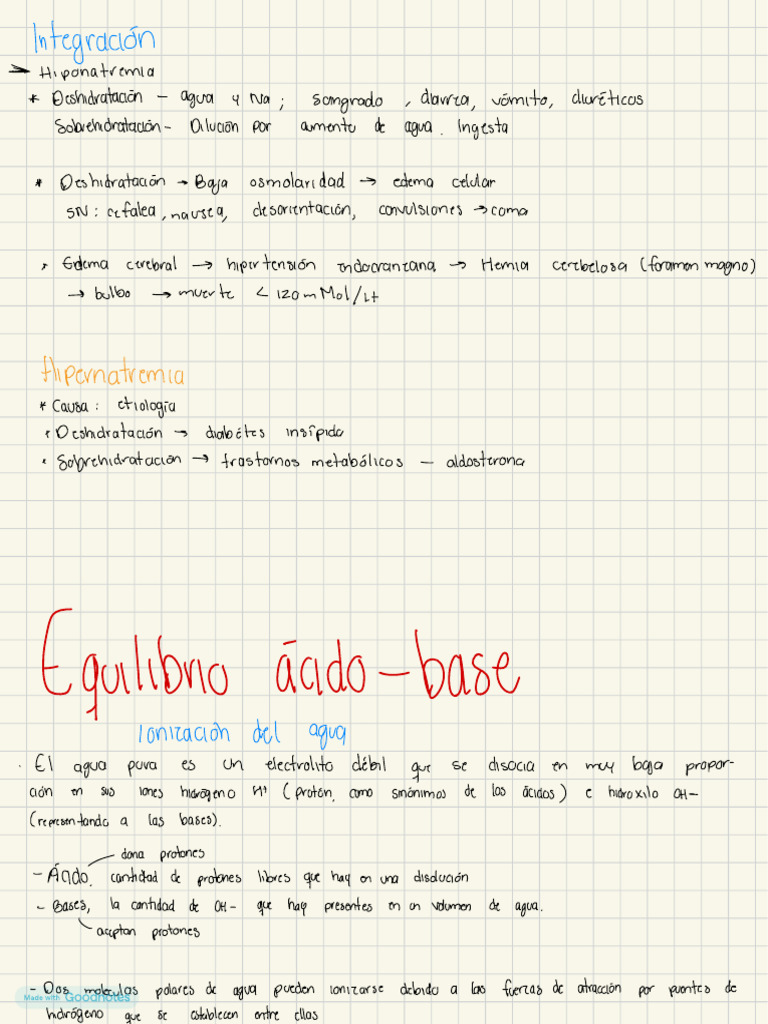 Integración
→ Hiponatremia
* Deshidratación – agua y Na; sangrado, diarrea, vómito, diuréticos
Sobrehidratación – Dilución por aumento de agua. Ingesta
* Deshidratación → Baja osmolaridad → edema celular
SN: cefalea, nausea, desorientación, convulsiones → coma
* Edema cerebral → hipertensión endocraneana → Hernia cerebelosa (foramen magno)
→ bulbo → muerte < 120 mMol/Lt
Hipernatremia
* Causa: etiología
• Deshidratación → diabétes insípida
• Sobrehidratación → trastornos metabólicos – aldosterona
Equilibrio ácido-base
Ionización del agua
· El agua pura es un electrolito débil que se disocia en muy baja propor-
ción en sus iones hidrógeno H+ (protón, como sinónimos de los ácidos) e hidroxilo OH-
(representando a las bases).
dona protones
- Ácido, cantidad de protones libres que hay en una disolución
- Bases, la cantidad de OH- que hay presentes en un volumen de agua.
aceptan protones
- Dos moleculas polares de agua pueden ionizarse debido a las fuerzas de atracción por puentes de
Made with Goodnotes
hidrógeno que se establecen entre ellas